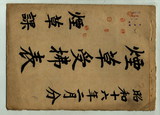 昭和六年二月分
煙草受拂表
煙草課